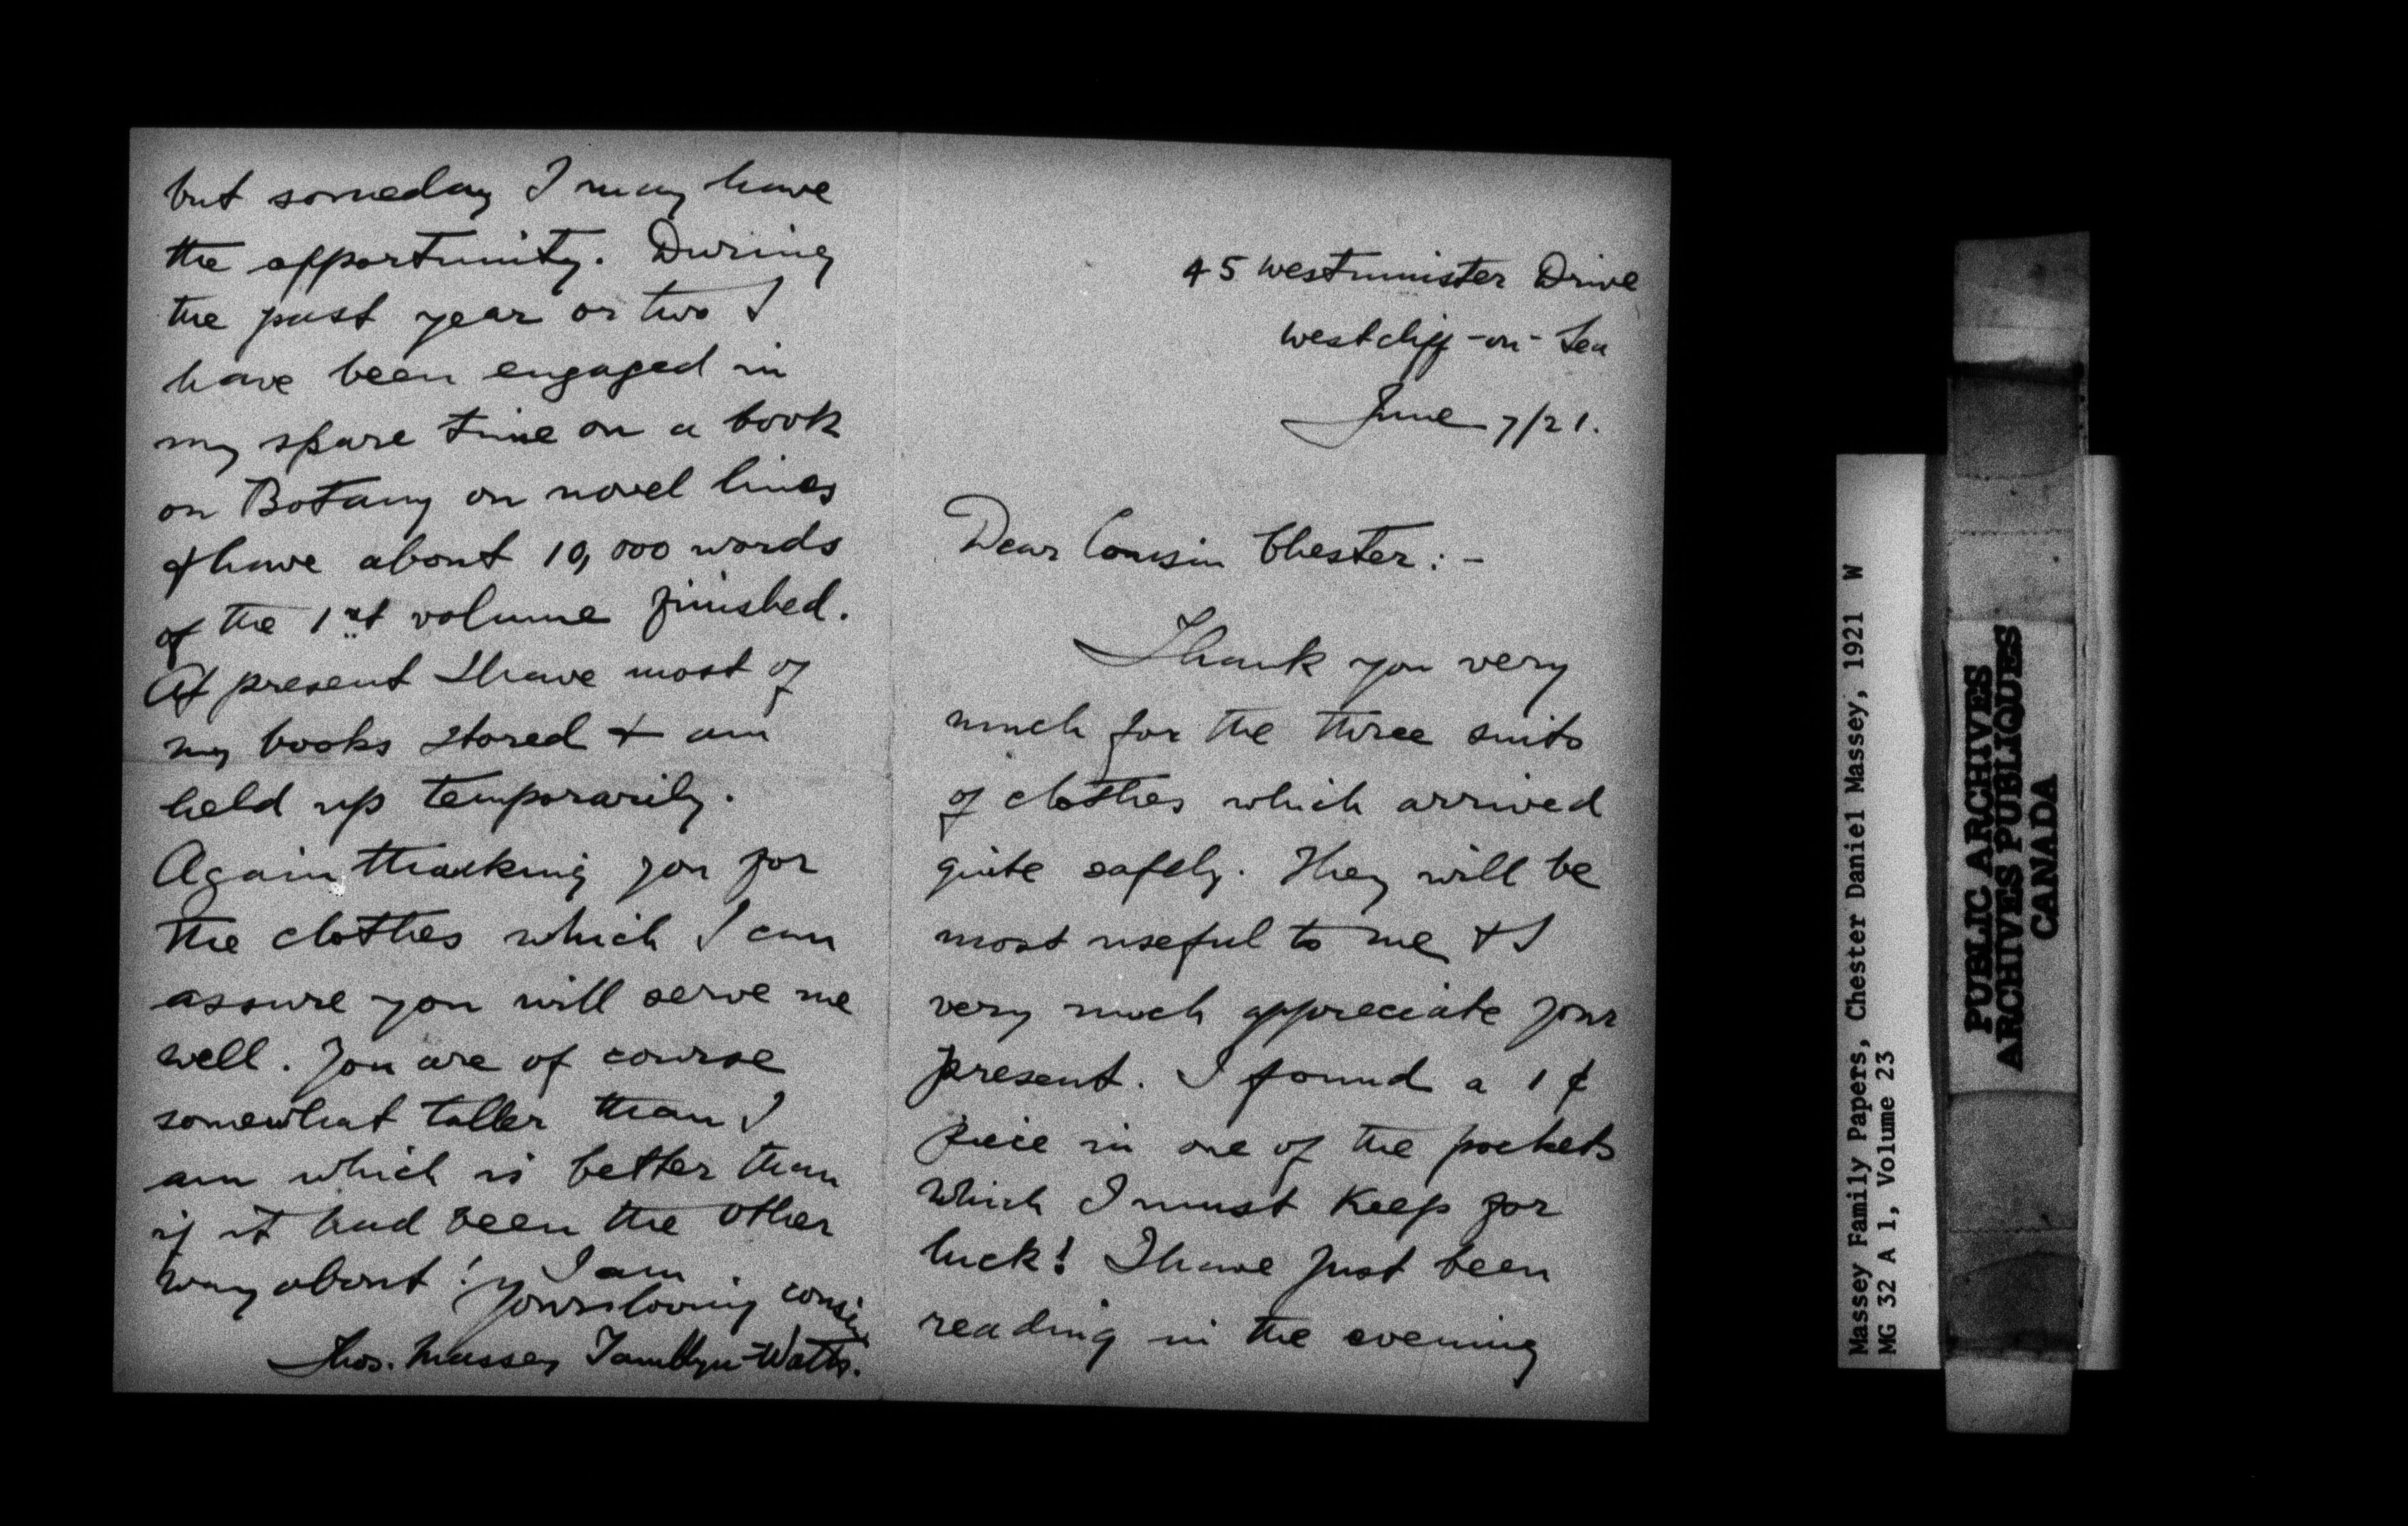 45 Westminister Drive
Westcliff-on-Sea
June 7/21.
Dear Cousin Chester: -
Thank you very
much for the three suits
of clothes which arrived
quite safely. They will be
most useful to me & I
very much appreciate your
present. I found a 1¢
piece in one of the pockets
which I must keep for
luck! I have just been
reading in the evening
but someday I may have
the opportunity. During
the past year or two I
have been engaged in
my spare time on a book
on Botany on novel lines
& have about 10,000 words
of the 1st volume finished.
At present I have most of
my books stored & am
held up temporarily.
Again thanking you for
the clothes which I can
assure you will serve me
well. You are of course
somewhat taller than I
am which is better than
if it had been the other
way about! I am
Your loving cousin
Thos. Massey Tamblyn-Watts.
Massey Family Papers, Chester Daniel Massey, 1921 W
MG 32 A 1, Volume 23
PUBLIC ARCHIVES
ARCHIVES PUBLIQUES
CANADA